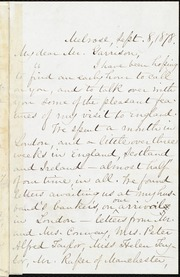 Melrose, Sept. 8, 1878.
My dear Mr. Garrison,
I have been hoping
to find an early hour to call
on you, and to talk over with
you some of the pleasant fea-
tures of my recent trip.
We spent a month in
London, and a little over three
weeks in England, Scotland
and Ireland – almost half
our time, in all. I found
letters awaiting us at my hus-
band's bankers, on our arrival
in London – letters from Mr.
and Mrs. Conway, Mrs. Peter
Alfred Taylor, Miss Helen Tay-
lor, Mr. Roper of Manchester,